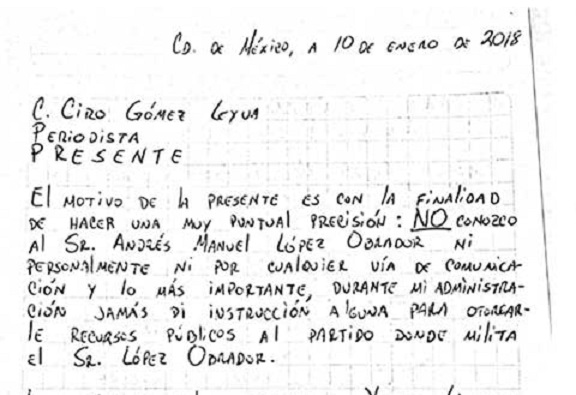 CD. DE MÉXICO, A 10 DE ENERO DE 2018
C. CIRO GÓMEZ LEYVA
PERIODISTA
PRESENTE
EL MOTIVO DE LA PRESENTE ES CON LA FINALIDAD
DE HACER UNA MUY PUNTUAL PRECISIÓN: NO CONOZCO
AL SR. ANDRÉS MANUEL LÓPEZ OBRADOR NI
PERSONALMENTE NI POR CUALQUIER VÍA DE COMUNICA-
CIÓN Y LO MÁS IMPORTANTE, DURANTE MI ADMINISTRA-
CIÓN JAMÁS DI INSTRUCCIÓN ALGUNA PARA OTORGAR-
LE RECURSOS PÚBLICOS AL PARTIDO DONDE MILITA
EL SR. LÓPEZ OBRADOR.